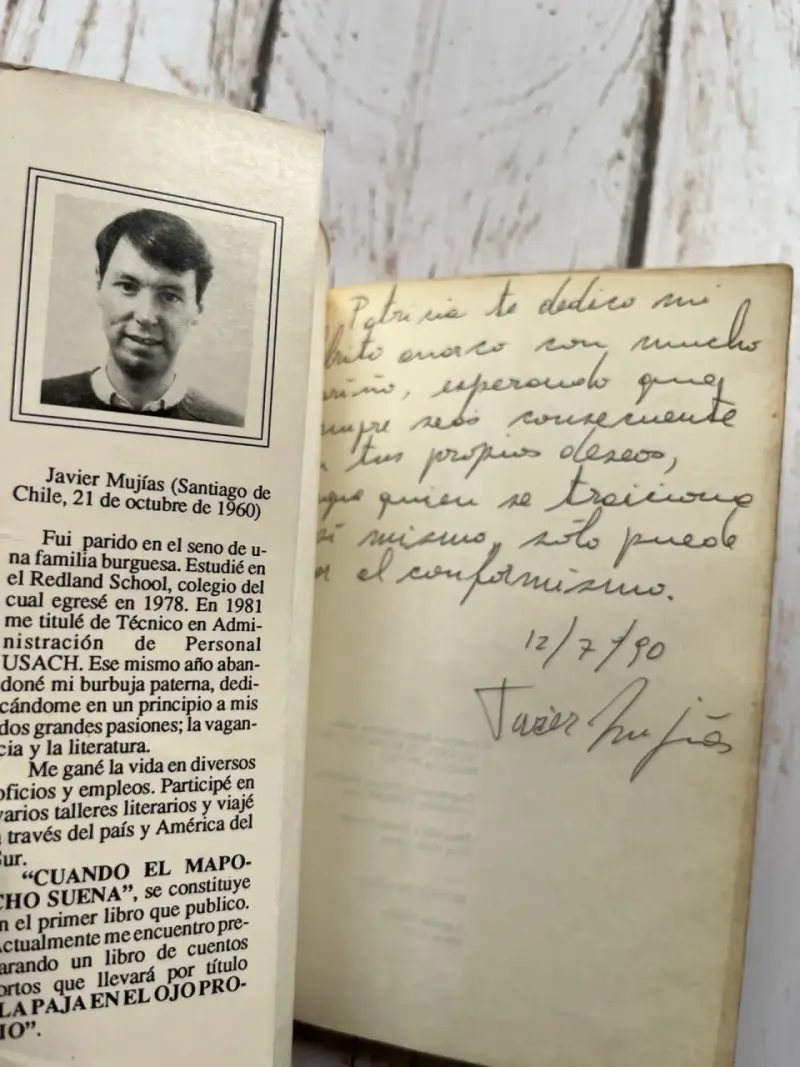 Javier Mujías (Santiago de
Chile, 21 de octubre de 1960)
Fui parido en el seno de u-
na familia burguesa. Estudié en
el Redland School, colegio del
cual egresé en 1978. En 1981
me titulé de Técnico en Admi-
nistración de Personal
USACH. Ese mismo año aban-
doné mi burbuja paterna, dedi-
cándome en un principio a mis
dos grandes pasiones; la vagan-
cia y la literatura.
Me gané la vida en diversos
oficios y empleos. Participé en
varios talleres literarios y viajé
a través del país y América del
Sur.
“CUANDO EL MAPO-
CHO SUENA”, se constituye
en el primer libro que publico.
Actualmente me encuentro pre-
parando un libro de cuentos
cortos que llevará por título
“LA PAJA EN EL OJO PRO-
PIO”.
Patricia te dedico mi
con mucho
esperando que
seas consecuente
tus propios deseos,
quien se traiciona
sí mismo, sólo puede
el conformismo.
12/7/90
Javier Mujías